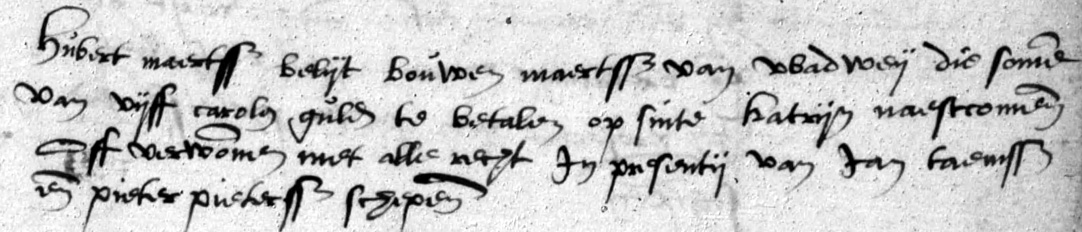 Hubert maertss belijt bouwen maertss van
van vijff carolus guld te betalen op sinte katrijn naestcomen
Off verwonnen met alle recht In presentij van Jan
en pieter pieterss schepen